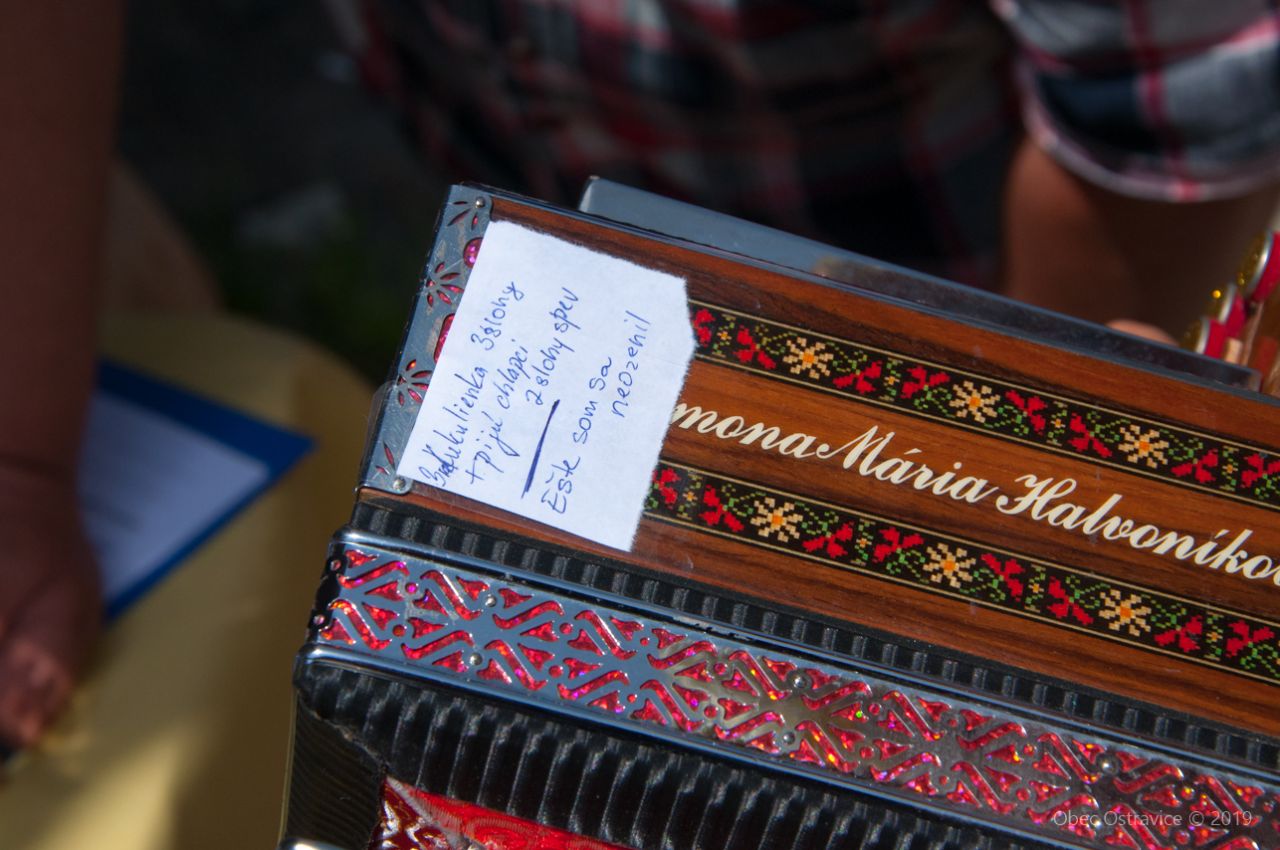 Kukulienka 3slohy
+ pijú chlapci
2 slohy spev
Ešte som sa
neozenil
mona Mária Halvoníko
Obec Ostravice © 2019